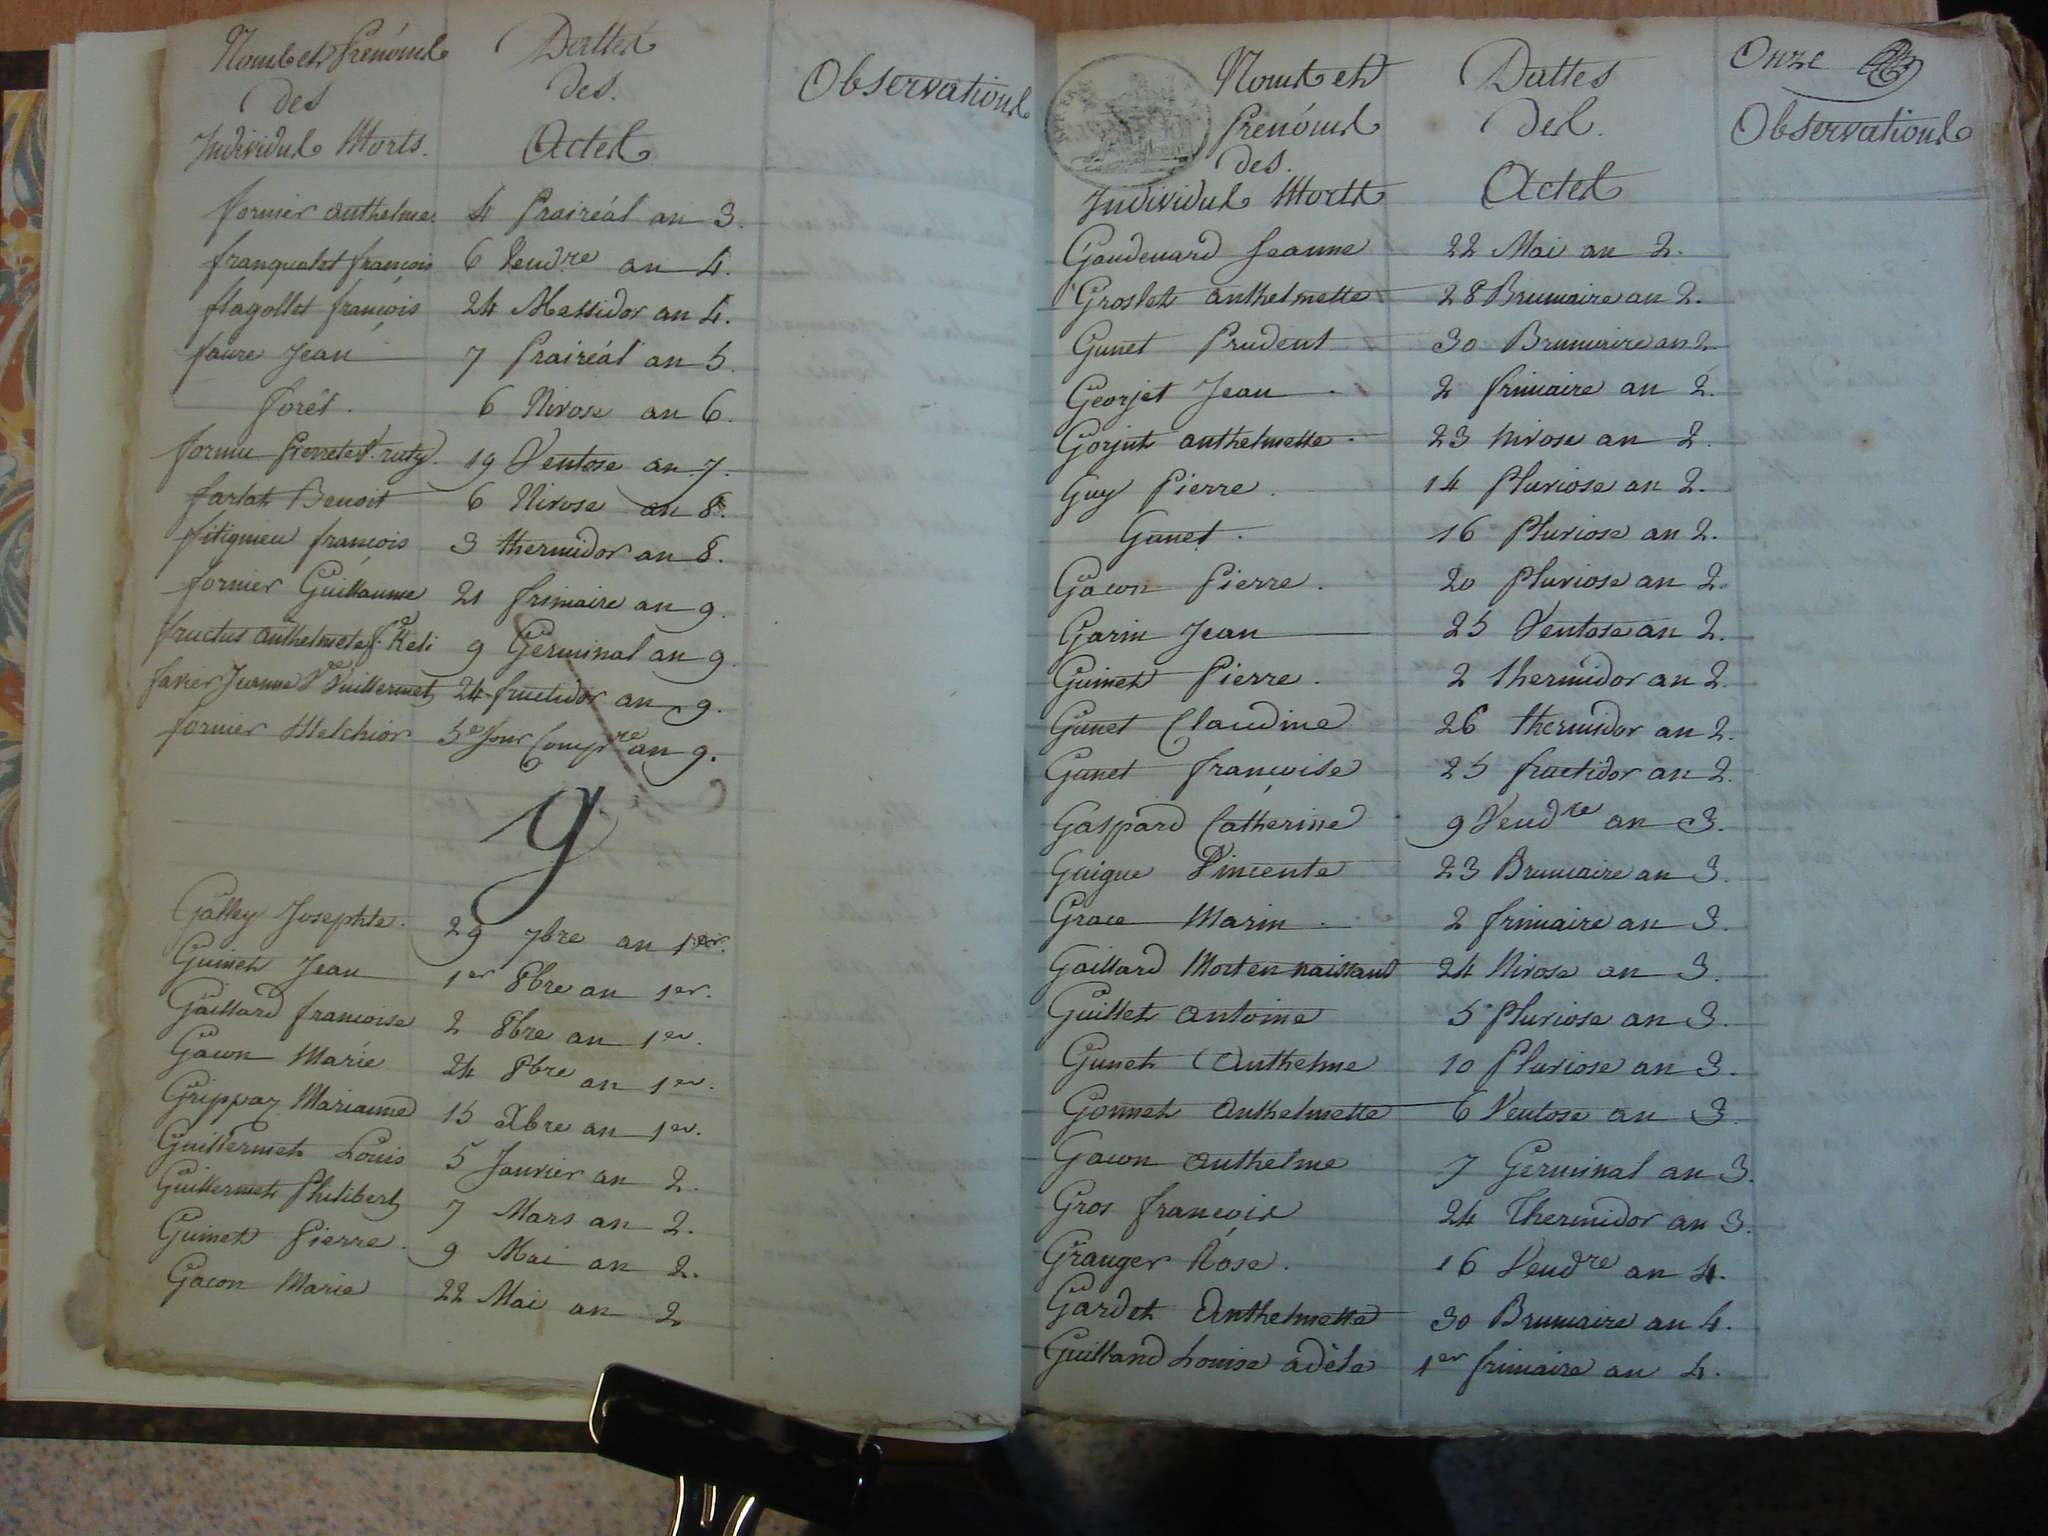 Noms et Prénoms
des
Individus Morts.
Dattes
des.
Actes
Observations
fornier anthelme 4 Prairéal an 3.
franquelet françois 6 Vendre an 4.
flagollet françois 24 Messidor an 4.
faure Jean 7 Prairéal an 5.
forêt. 6 Nivose an 6.
19 Ventose an 7.
farlat Benoit 6 Nivose an 8.
fitignieu françois 3 thermidor an 8.
fornier Guillaume 21 frimaire an 9.
fructus anthelmete 9 Germinal an 9.
favier Jeanne Ve Vuillermet 24 fructidor an 9.
fornier Melchior 5e Jour Compre an 9.
g
Galley Josephte. 29 7bre an 1er.
Guinet Jean 1er 8bre an 1er.
Gaillard françoise 2 8bre an 1er.
Gacon Marie 24 8bre an 1er.
Grippaz Marianne 15 Xbre an 1er.
Guillermet Louis 5 Janvier an 2.
Guillermet Philibert 7 Mars an 2.
Guinet Pierre. 9 Mai an 2.
Gacon Marie 22 Mai an 2
Onze
Noms et
Prénoms
des.
Individus Morts
Dattes
Des.
Actes
Observations
Gaudenard Jeanne 22 Mai an 2.
Groslet anthelmette 28 Brumaire an 2.
Gunet Prudent 30 Brumaire an 2
Georjet Jean 2 frimaire an 2.
Gorjut anthelmette. 23 nivose an 2.
Guy Pierre. 14 Pluviose an 2.
Gunet. 16 Pluviose an 2.
Gacon Pierre. 20 Pluviose an 2.
Garin Jean 25 Ventose an 2.
Guinet Pierre. 2 thermidor an 2.
Gunet Claudine 26 thermidor an 2.
Gunet françoise 25 fructidor an 2.
Gaspard Catherine 9 Vendre an 3.
Guigue Vincente 23 Brumaire an 3.
Grace Marin. 2 frimaire an 3.
Gaillard Mort en naissant 24 Nivose an 3.
Guillet antoine 5 Pluviose an 3.
Gunet Anthelme 10 Pluviose an 3.
Gonnet anthelmette 6 Ventose an 3.
Gacon anthelme 7 Germinal an 3.
Gros françois 24 Thermidor an 3.
Granger Rose. 16 Vendre an 4.
Gardet Anthelmette 30 Brumaire an 4.
Guilland Louise adèle 1er frimaire an 4.